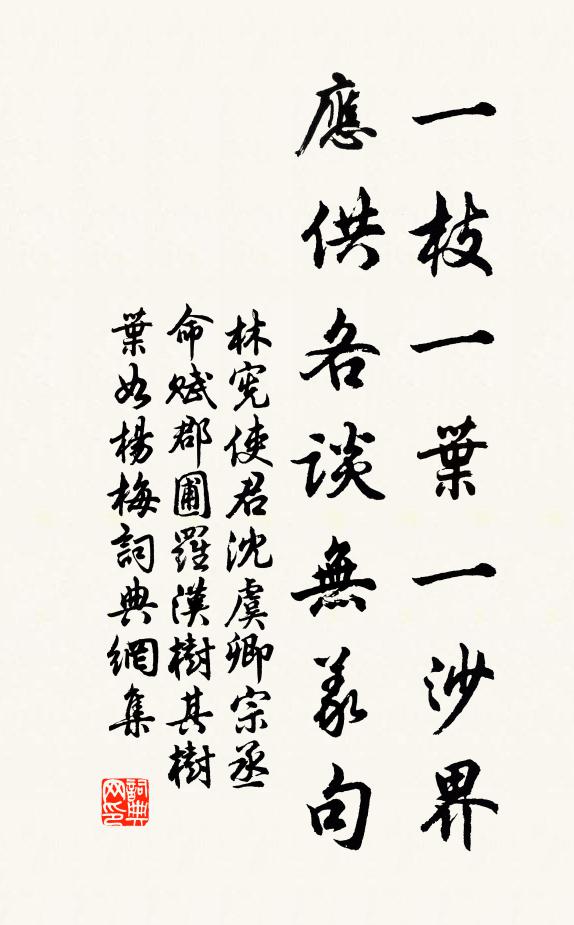 一枝一葉一沙界
應供各談無義句
林宪使君沈虞卿宗丞
命赋郡圃羅漢樹其樹
葉如楊梅詞典網集
詞典网印